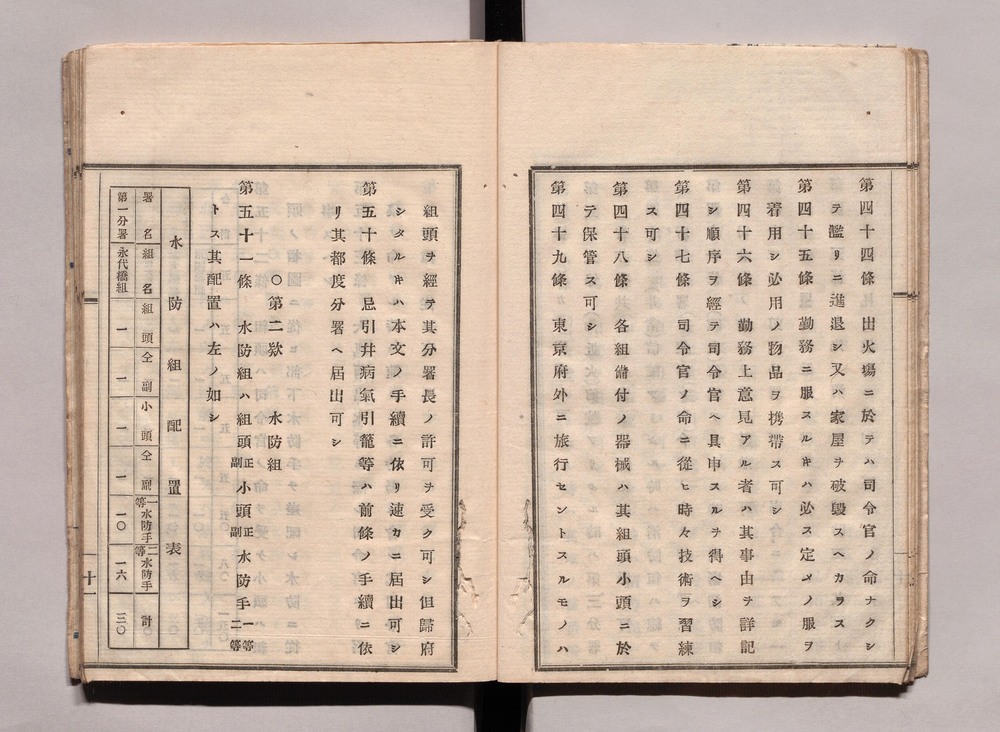 第四十四條 出火塲ニ於テハ司令官ノ命ナクシ
テ濫リニ進退シ又ハ家屋ヲ破毀スヘカラス
第四十五條 勤務ニ服スルキハ必ス定メノ服ヲ
着用シ必用ノ物品ヲ携帶ス可シ
第四十六條 勤務上意見アル者ハ其事由ヲ詳記
シ順序ヲ經テ司令官ヘ具申スルヲ得ヘシ
第四十七條 司令官ノ命ニ從ヒ時々技術ヲ習練
ス可シ
第四十八條 各組備付ノ器械ハ其組頭小頭ニ於
テ保管ス可シ
第四十九條 東京府外ニ旅行セントスルモノハ
組頭ヲ經テ其分署長ノ許可ヲ受ク可シ但歸府
シタルキハ本文ノ手續ニ依リ速カニ届出可シ
第五十條 忌引幷病氣引籠等ハ前條ノ手續ニ依
リ其都度分署ヘ届出可シ
〇第二欵 水防組
第五十一條 水防組ハ組頭正副小頭正副水防手一等二等
トス其配置ハ左ノ如シ
水防組配置表
署名 組名 組頭 仝副 小頭 仝副 一等水防手 二等水防手 計
第一分署 永代橋組 一 一 一 一 一〇 一六 三〇
十一